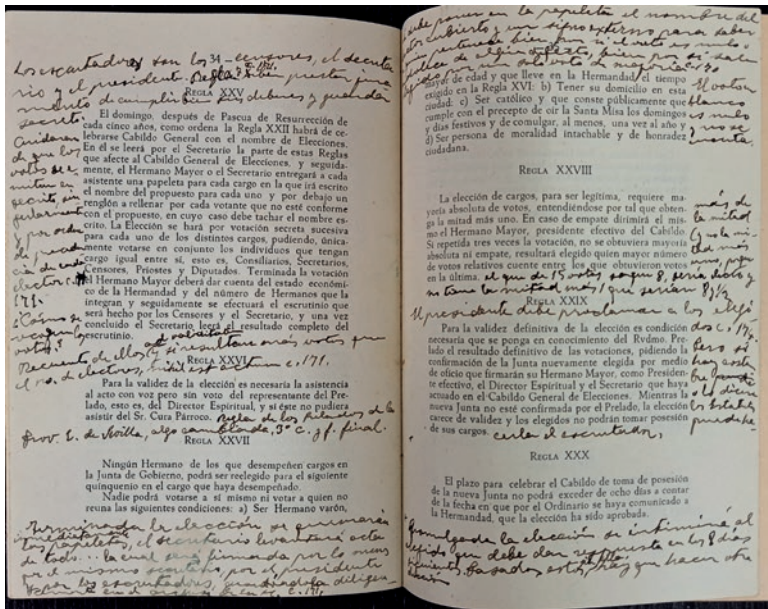 Los escrutadores son los 34 censores, el secreta
rio y el presidente. Regla
mento de cumplir bien sus deberes y guardar
secreto.
REGLA XXV
El domingo, después de Pascua de Resurrección de
cada cinco años, como ordena la Regla XXII habrá de ce-
lebrarse Cabildo General con el nombre de Elecciones.
En él se leerá por el Secretario la parte de estas Reglas
que afecte al Cabildo General de Elecciones, y seguida-
mente, el Hermano Mayor o el Secretario entregará a cada
asistente una papeleta para cada cargo en la que irá escrito
el nombre del propuesto para cada uno y por debajo un
renglón a rellenar por cada votante que no esté conforme
con el propuesto, en cuyo caso debe tachar el nombre es-
crito. La Elección se hará por votación secreta sucesiva
para cada uno de los distintos cargos, pudiendo, única-
mente votarse en conjunto los individuos que tengan
cargo igual entre sí, esto es, Consiliarios, Secretarios,
Censores, Priostes y Diputados. Terminada la votación
el Hermano Mayor deberá dar cuenta del estado económi-
co de la Hermandad y del número de Hermanos que la
integran y seguidamente se efectuará el escrutinio que
será hecho por los Censores y el Secretario, y una vez
concluido el Secretario leerá el resultado completo del
escrutinio.
Cuidaran
de que los
votos se e-
mitan en
secreto,
y por orden
de
cia de cada
elector c.
171.
¿Cómo se
votos?
Recuento de ellos, y si resultaren más votos que
el no. de electores, nihil est actum c. 171.
REGLA XXVI
Para la validez de la elección es necesaria la asistencia
al acto con voz pero sin voto del representante del Pre-
lado, esto es, del Director Espiritual, y si éste no pudiera
asistir del Sr. Cura Párroco. Regla de los Prelados de la
Prov. E. de Sevilla, algo cambiada, 3º c. y f. final.
REGLA XXVII
Ningún Hermano de los que desempeñen cargos en
la Junta de Gobierno, podrá ser reelegido para el siguiente
quinquenio en el cargo que haya desempeñado.
Nadie podrá votarse a sí mismo ni votar a quien no
reuna las siguientes condiciones: a) Ser Hermano varón,
Terminada la elección se quemarán
inmediatamente
las papeletas, el secretario levantará acta
de todo... la cual será firmada por lo menos
por el mismo secretario, por el presidente
y por los escrutadores, guardándola diligen-
temente en el archivo c. 171.
debe poner en la papeleta el nombre del
cubierto y un signo externo para saber
pertenece bien
mayor de edad y que lleve en la Hermandad el tiempo
exigido en la Regla XVI: b) Tener su domicilio en esta
ciudad: c) Ser católico y que conste públicamente que
cumple con el precepto de oir la Santa Misa los domingos
y días festivos y de comulgar, al menos, una vez al año y
d) Ser persona de moralidad intachable y de honradez
ciudadana.
El voto en
blanco
es nulo
y no se
cuenta.
REGLA XXVIII
La elección de cargos, para ser legítima, requiere ma-
yoría absoluta de votos, entendiéndose por tal que obten-
ga la mitad más uno. En caso de empate dirimirá el mis-
mo el Hermano Mayor, presidente efectivo del Cabildo.
Si repetida tres veces la votación, no se obtuviera mayoría
absoluta ni empate, resultará elegido quien mayor número
de votos relativos cuente entre los que obtuvieron votos
en la última.
más de
la mitad
(y no la mi-
tad más
uno, porque
el que de 15 votos saque 8, sería electo y
no tiene la mitad más 1 que serían 8 1/2
REGLA XXIX
El presidente debe proclamar a los elegi
dos c. 174.
Para la validez definitiva de la elección es condición
necesaria que se ponga en conocimiento del Rvdmo. Pre-
lado el resultado definitivo de las votaciones, pidiendo la
confirmación de la Junta nuevamente elegida por medio
de oficio que firmarán su Hermano Mayor, como Presiden-
te efectivo, el Director Espiritual y el Secretario que haya
actuado en el Cabildo General de Elecciones. Mientras la
nueva Junta no esté confirmada por el Prelado, la elección
carece de validez y los elegidos no podrán tomar posesión
de sus cargos.
Pero si
hay costum
bre
o lo dicen
los Estatutos
puede ha-
cerlo el escrutador,
REGLA XXX
El plazo para celebrar el Cabildo de toma de posesión
de la nueva Junta no podrá exceder de ocho días a contar
de la fecha en que por el Ordinario se haya comunicado a
la Hermandad, que la elección ha sido aprobada.
Promulgada la elección se intimará al
elegido que debe dar respuesta en los 8 días
siguientes. Pasados estos, hay que hacer otra
elección